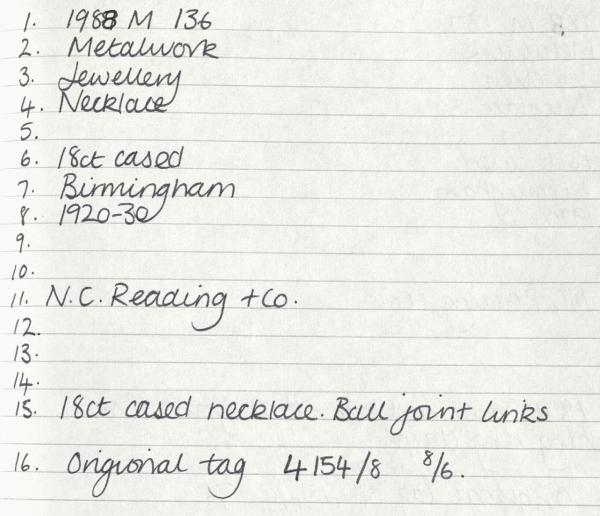 1. 1988 M 136
2. Metalwork
3. Jewellery
4. Necklace
5.
6. 18ct cased
7. Birmingham
8. 1920-30
9.
10.
11. N.C. Reading + Co.
12.
13.
14.
15. 18ct cased necklace. Ball joint links
16. Origional tag 4154/8 8/6.